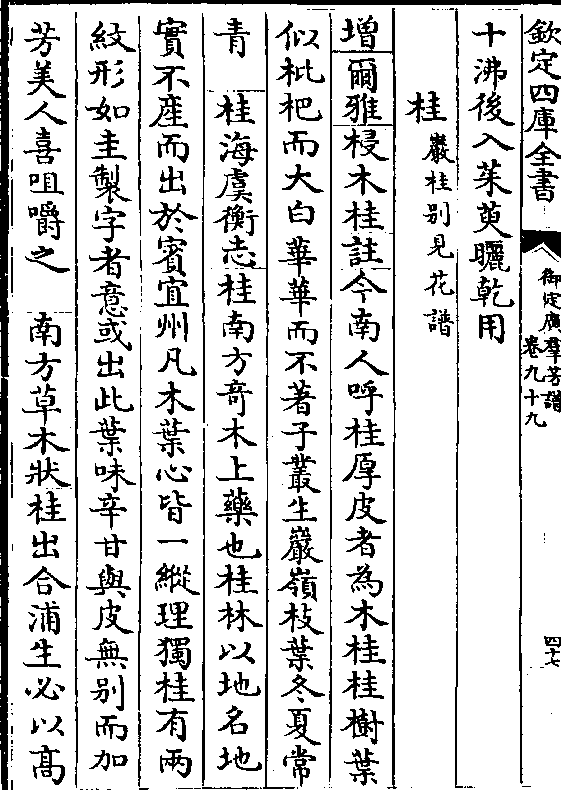 欽定四庫全書
御定廣羣芳譜
卷九十九
四十七
十沸後入茱萸曬乾用
桂巖桂別見花譜
增爾雅梫木桂註今南人呼桂厚皮者為木桂桂樹葉
似枇杷而大白華華而不著子叢生巖嶺枝葉冬夏常
青　桂海虞衡志桂南方奇木上藥也桂林以地名地
實不產而出於賓宜州凡木葉心皆一縱理獨桂有兩
紋形如圭製字者意或出此葉味辛甘與皮無別而加
芳美人喜咀嚼之　南方草木狀桂出合浦生必以高